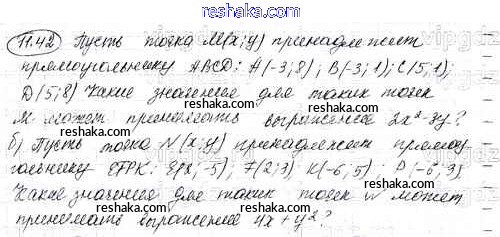 11.42 Пусть точка M(x;y) принадлежит
прямоугольнику ABCD: A(-3;8); B(-3;1); C(5;1);
D(5;8) Какие значения для таких точек
M может принимать выражение 2x²-3y?
б) Пусть точка N(x;y) принадлежит прямоу-
гольнику EFPK: E(2;-5); F(2;3) K(-6;5); P(-6;3)
Какие значения для таких точек N может
принимать выражение 4x+y²?
reshaka.ru
reshaka.ru
reshaka.ru
reshaka.ru
reshaka.ru
reshaka.ru